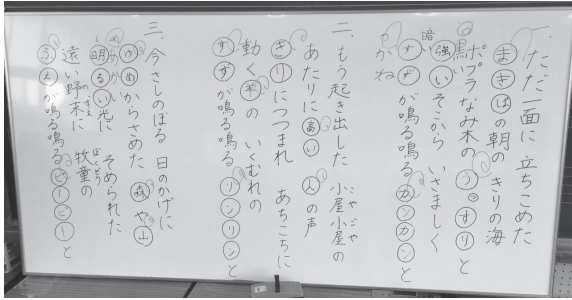 一、ただ一面に 立ちこめた
まきばの朝の きりの海
ポプラなみ木の うっすりと
暗い
強い そこから いさましく
すずが鳴る鳴る カンカンと
かね
二、もう起き出した 小屋小屋の
こやごや
あたりに 高い 人の声
きりにつつまれ あちこちに
動く羊の いくむれの
すずが鳴る鳴る リンリンと
三、今さしのぼる 日のかげに
ゆめからさめた 森や山
明るい光に そめられた
遠い野末に 牧童の
のずえ
ぼくどう
ふえが鳴る鳴る ピーピーと